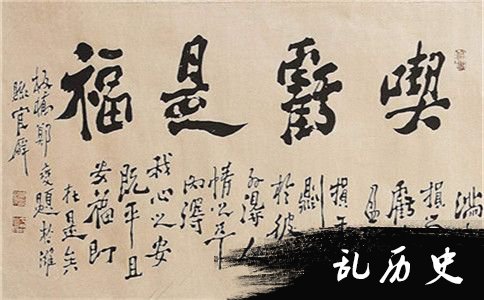 喫虧是福
滿
損
虧
盈
損于
則
於彼
外得人
情之平
内得
我心之安
既平且
安福即
在是矣
板橋鄭燮題於濰
縣官廨
乱历史